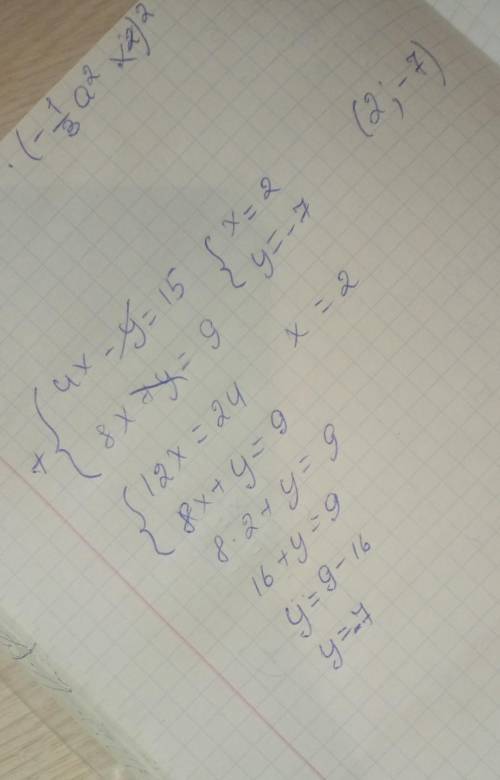 · (-1/3 a² x2)²
(2; -7)
+ { 4x - y = 15
8x + y = 9
{ x = 2
y = -7
{ 12x = 24
8x + y = 9
x = 2
8 · 2 + y = 9
16 + y = 9
y = 9 - 16
y = -7